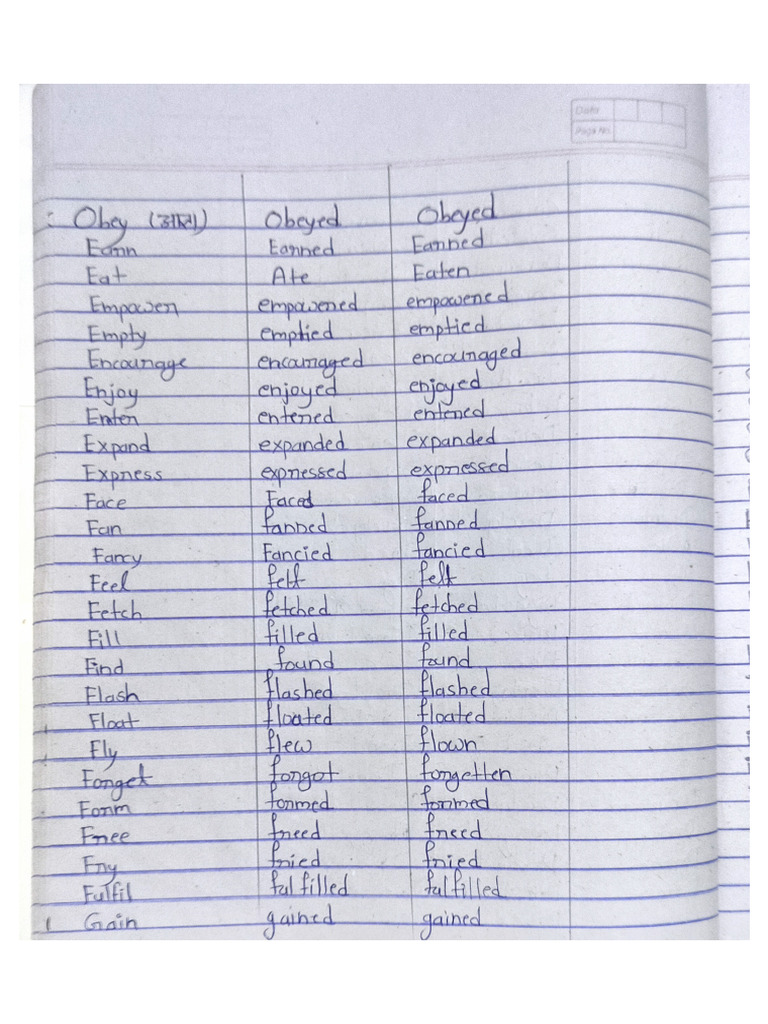 Date
Page No.
Obey (आज्ञा) Obeyed Obeyed
Earn Earned Earned
Eat Ate Eaten
Empower empowered empowered
Empty emptied emptied
Encourage encouraged encouraged
Enjoy enjoyed enjoyed
Enter entered entered
Expand expanded expanded
Express expressed expressed
Face Faced faced
Fan fanned fanned
Fancy Fancied fancied
Feel felt felt
Fetch fetched fetched
Fill filled filled
Find found found
Flash flashed flashed
Float floated floated
Fly flew flown
Forget forgot forgetten
Form formed formed
Free freed freed
Fry fried fried
Fulfil fulfilled fulfilled
Gain gained gained